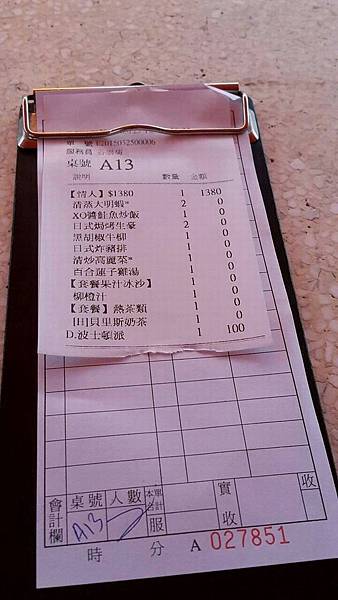 單 號 E2015052500006
服務員
桌號 A13
說明 數量 金額
【情人】$1380 1 1380
清蒸大明蝦* 2 0
XO醬鮭魚炒飯 1 0
日式焗烤生蠔 2 0
黑胡椒牛柳 1 0
日式炸豬排 1 0
清炒高麗菜* 1 0
百合蓮子雞湯 1 0
【套餐果汁冰沙】 1 0
柳橙汁 1 0
【套餐】熱茶類 1 0
[H]貝里斯奶茶 1 0
D.波士頓派 1 100
會計欄 桌號 人數 本單合計 實收 收
A13 2 服
時 分 A 027851